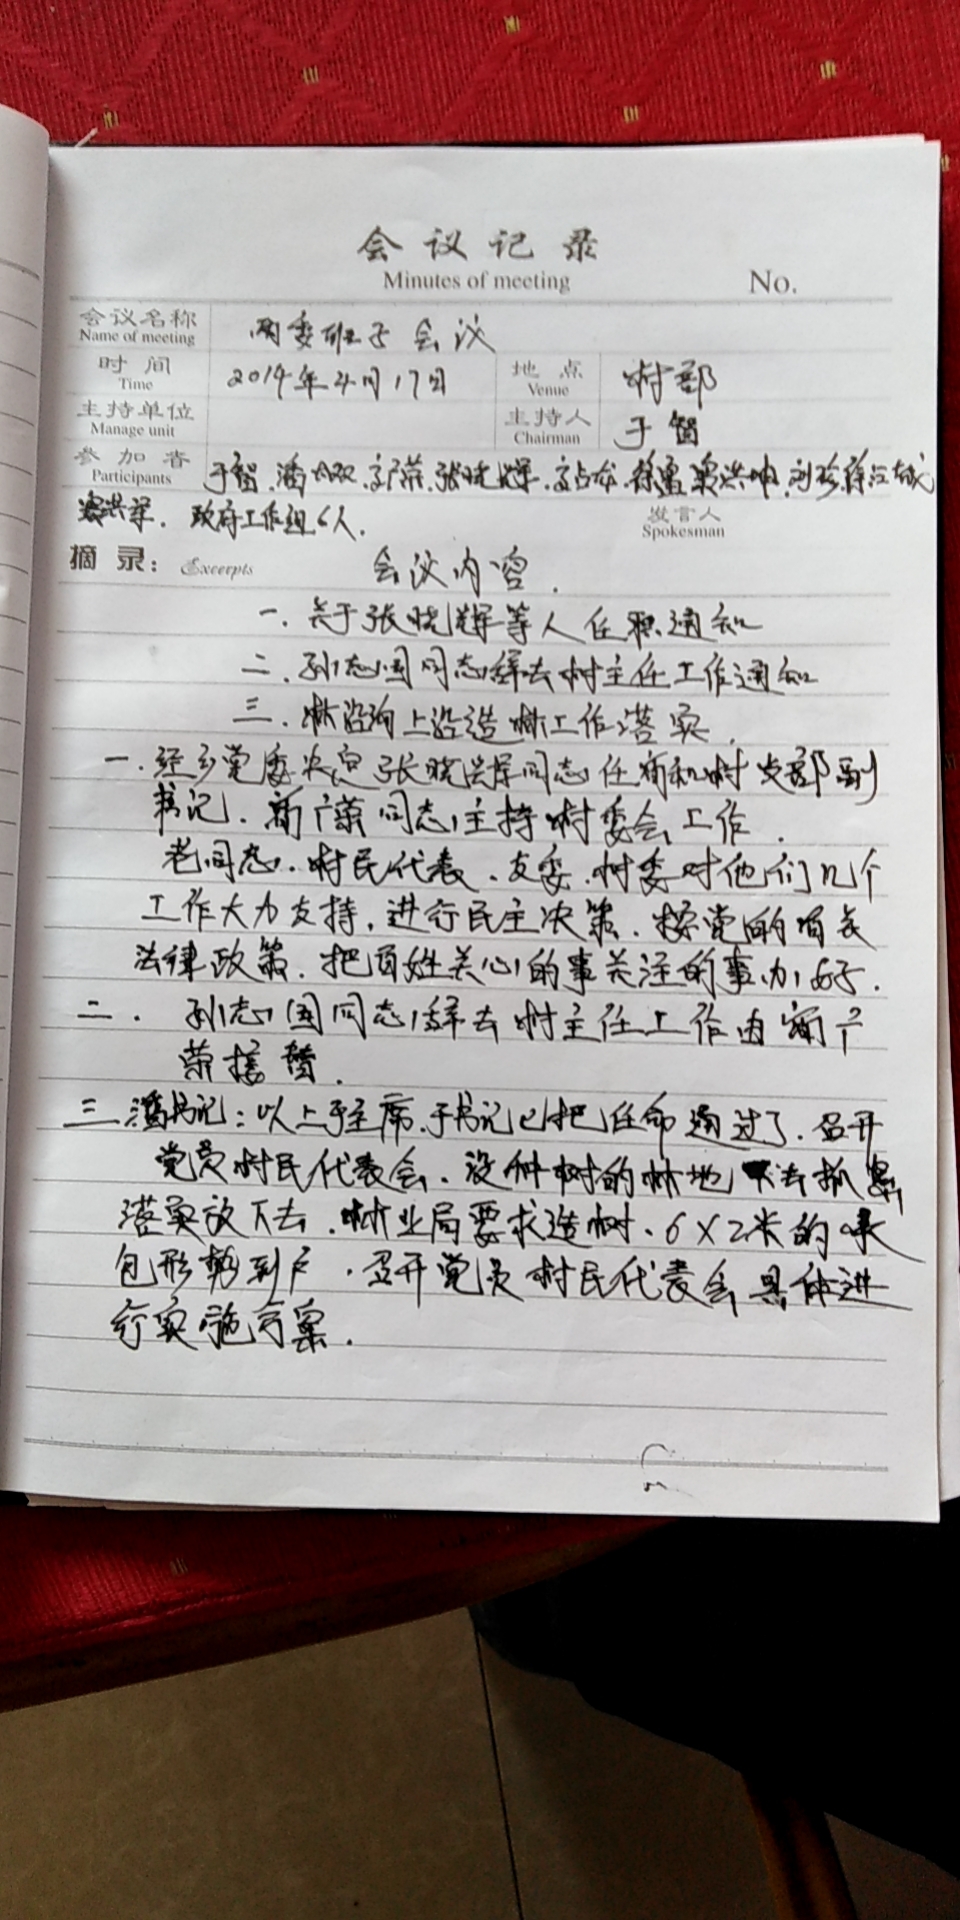 会议记录
Minutes of meeting No.
会议名称 两委班子会议
Name of meeting
时间 2014年4月17日 地点 村部
Time Venue
主持单位 主持人 于智
Manage unit Chairman
参加者 于智.潘 张晓辉.徐 刘珍
Participants
政府工作组6人. 发言人
Spokesman
摘录: Excerpts 会议内容.
一.关于张晓辉等人任职通知
二.孙志国同志辞去村主任工作通知
三.林沿沟上沿造林工作落实.
一.经乡党委决定张晓辉同志任 村支部副
书记. 同志主持村委会工作.
老同志.村民代表.支委.村委对他们几个
工作大力支持,进行民主决策.按党的有关
法律政策.把百姓关心的事关注的事办好.
二. 孙志国同志辞去村主任工作由 广
荣接替.
三.潘书记:以上于主席.于书记已把任命通过了.召开
党员村民代表会.没种树的林地 去抓紧
落实放下去.林业局要求造树.6X2米的承
包形势到户.召开党员村民代表会具体进
行实施方案.